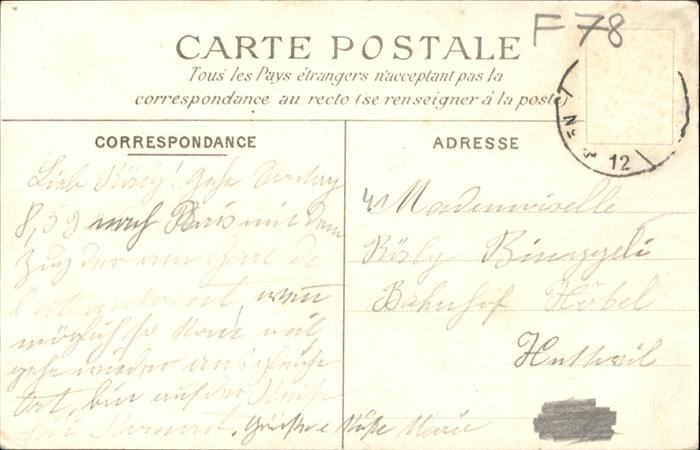 F 78
CARTE POSTALE
Tous les Pays étrangers n'acceptent pas la
correspondance au recto (se renseigner à la poste)
12
CORRESPONDANCE
ADRESSE
Lieb Rösly! Gehe Sonntag
8,59 nach Paris mit dem
Zug der am Gare de
l'est ankomt, wenn
möglich so
gehe wieder
Ort, bin auf der
Grüsse & Küsse
Mademoiselle
Rösly Binggeli
Bahnhof Hôtel
Huttwil